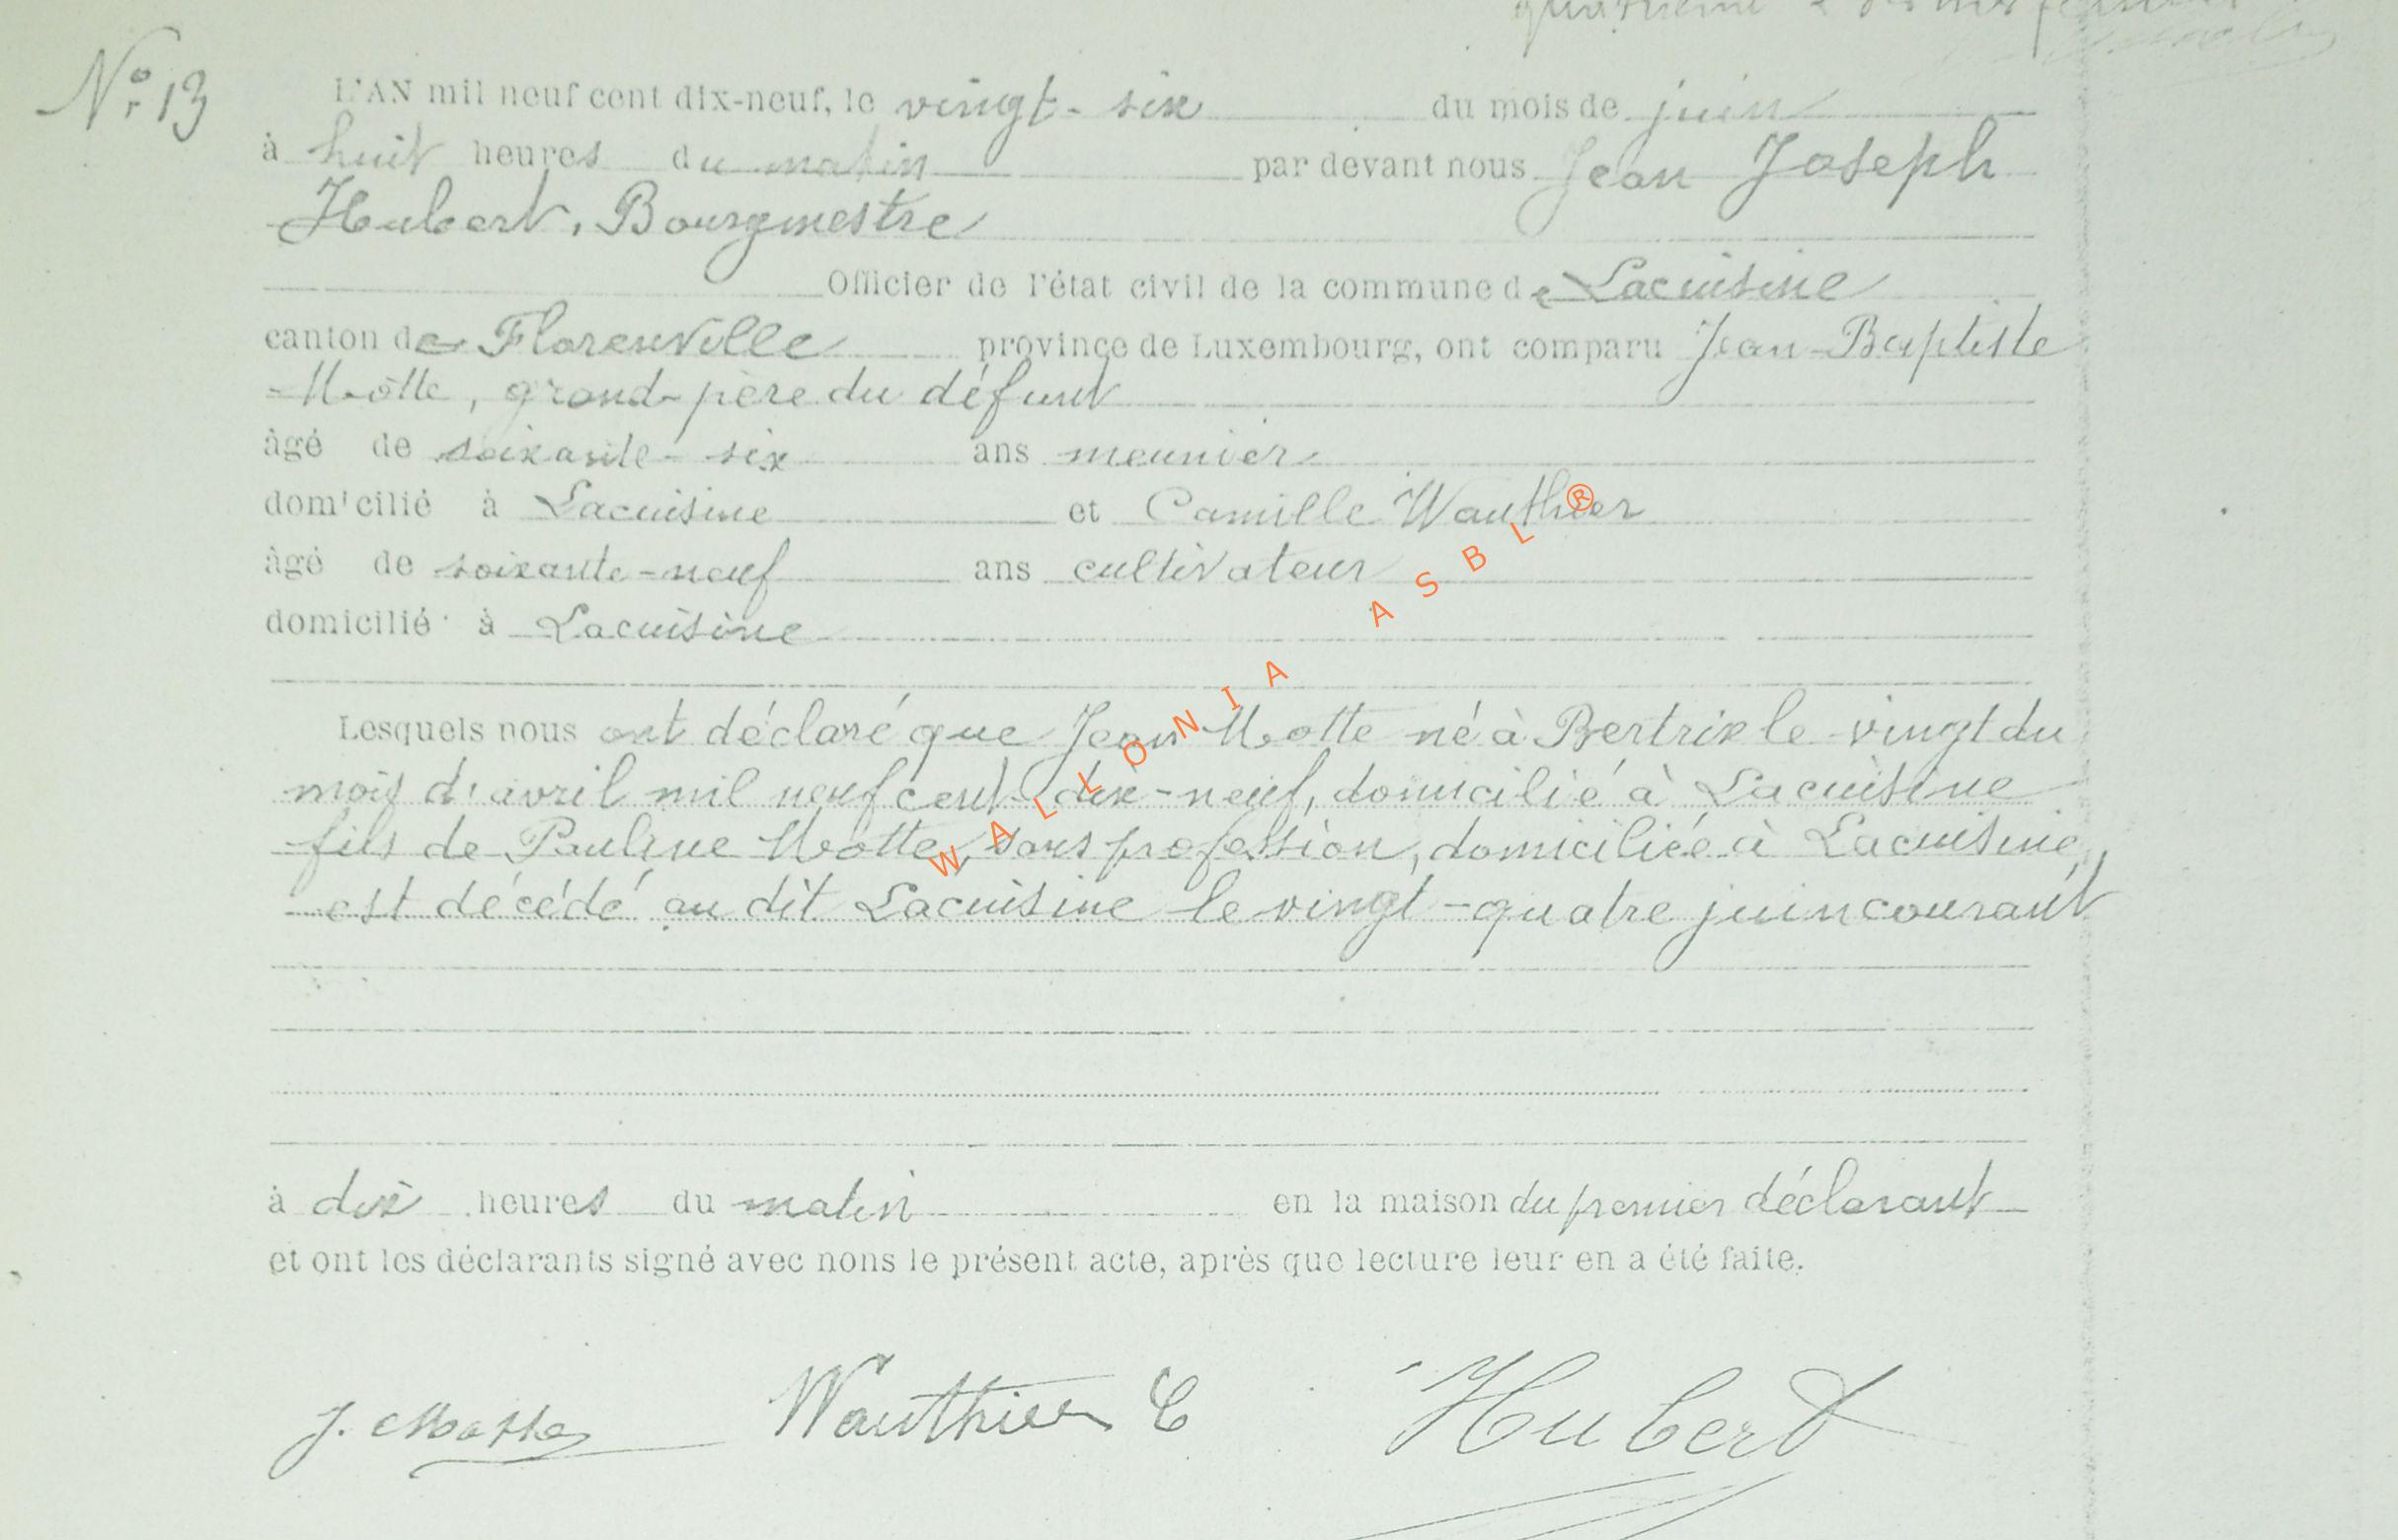 quatrième
Nor 13
L'AN mil neuf cent dix-neuf, le vingt-six du mois de juin
à huit heures du matin par devant nous Jean Joseph
Hubert, Bourgmestre
Officier de l'état civil de la commune de Lacuisine
canton de Florenville province de Luxembourg, ont comparu Jean-Baptiste
Motte, grand-père du défunt
âgé de soixante-six ans meunier
domicilié à Lacuisine et Camille Wauthier
âgé de soixante-neuf ans cultivateur
domicilié à Lacuisine
Lesquels nous ont déclaré que Jean Motte né à Bertrix le vingt du
mois d'avril mil neuf cent dix-neuf, domicilié à Lacuisine
fils de Pauline Motte, sans profession, domiciliée à Lacuisine,
est décédé au dit Lacuisine le vingt-quatre juin courant
à dix heures du matin en la maison du premier déclarant
et ont les déclarants signé avec nous le présent acte, après que lecture leur en a été faite.
J. Motte Wauthier C Hubert
WALLONIA ASBL ®